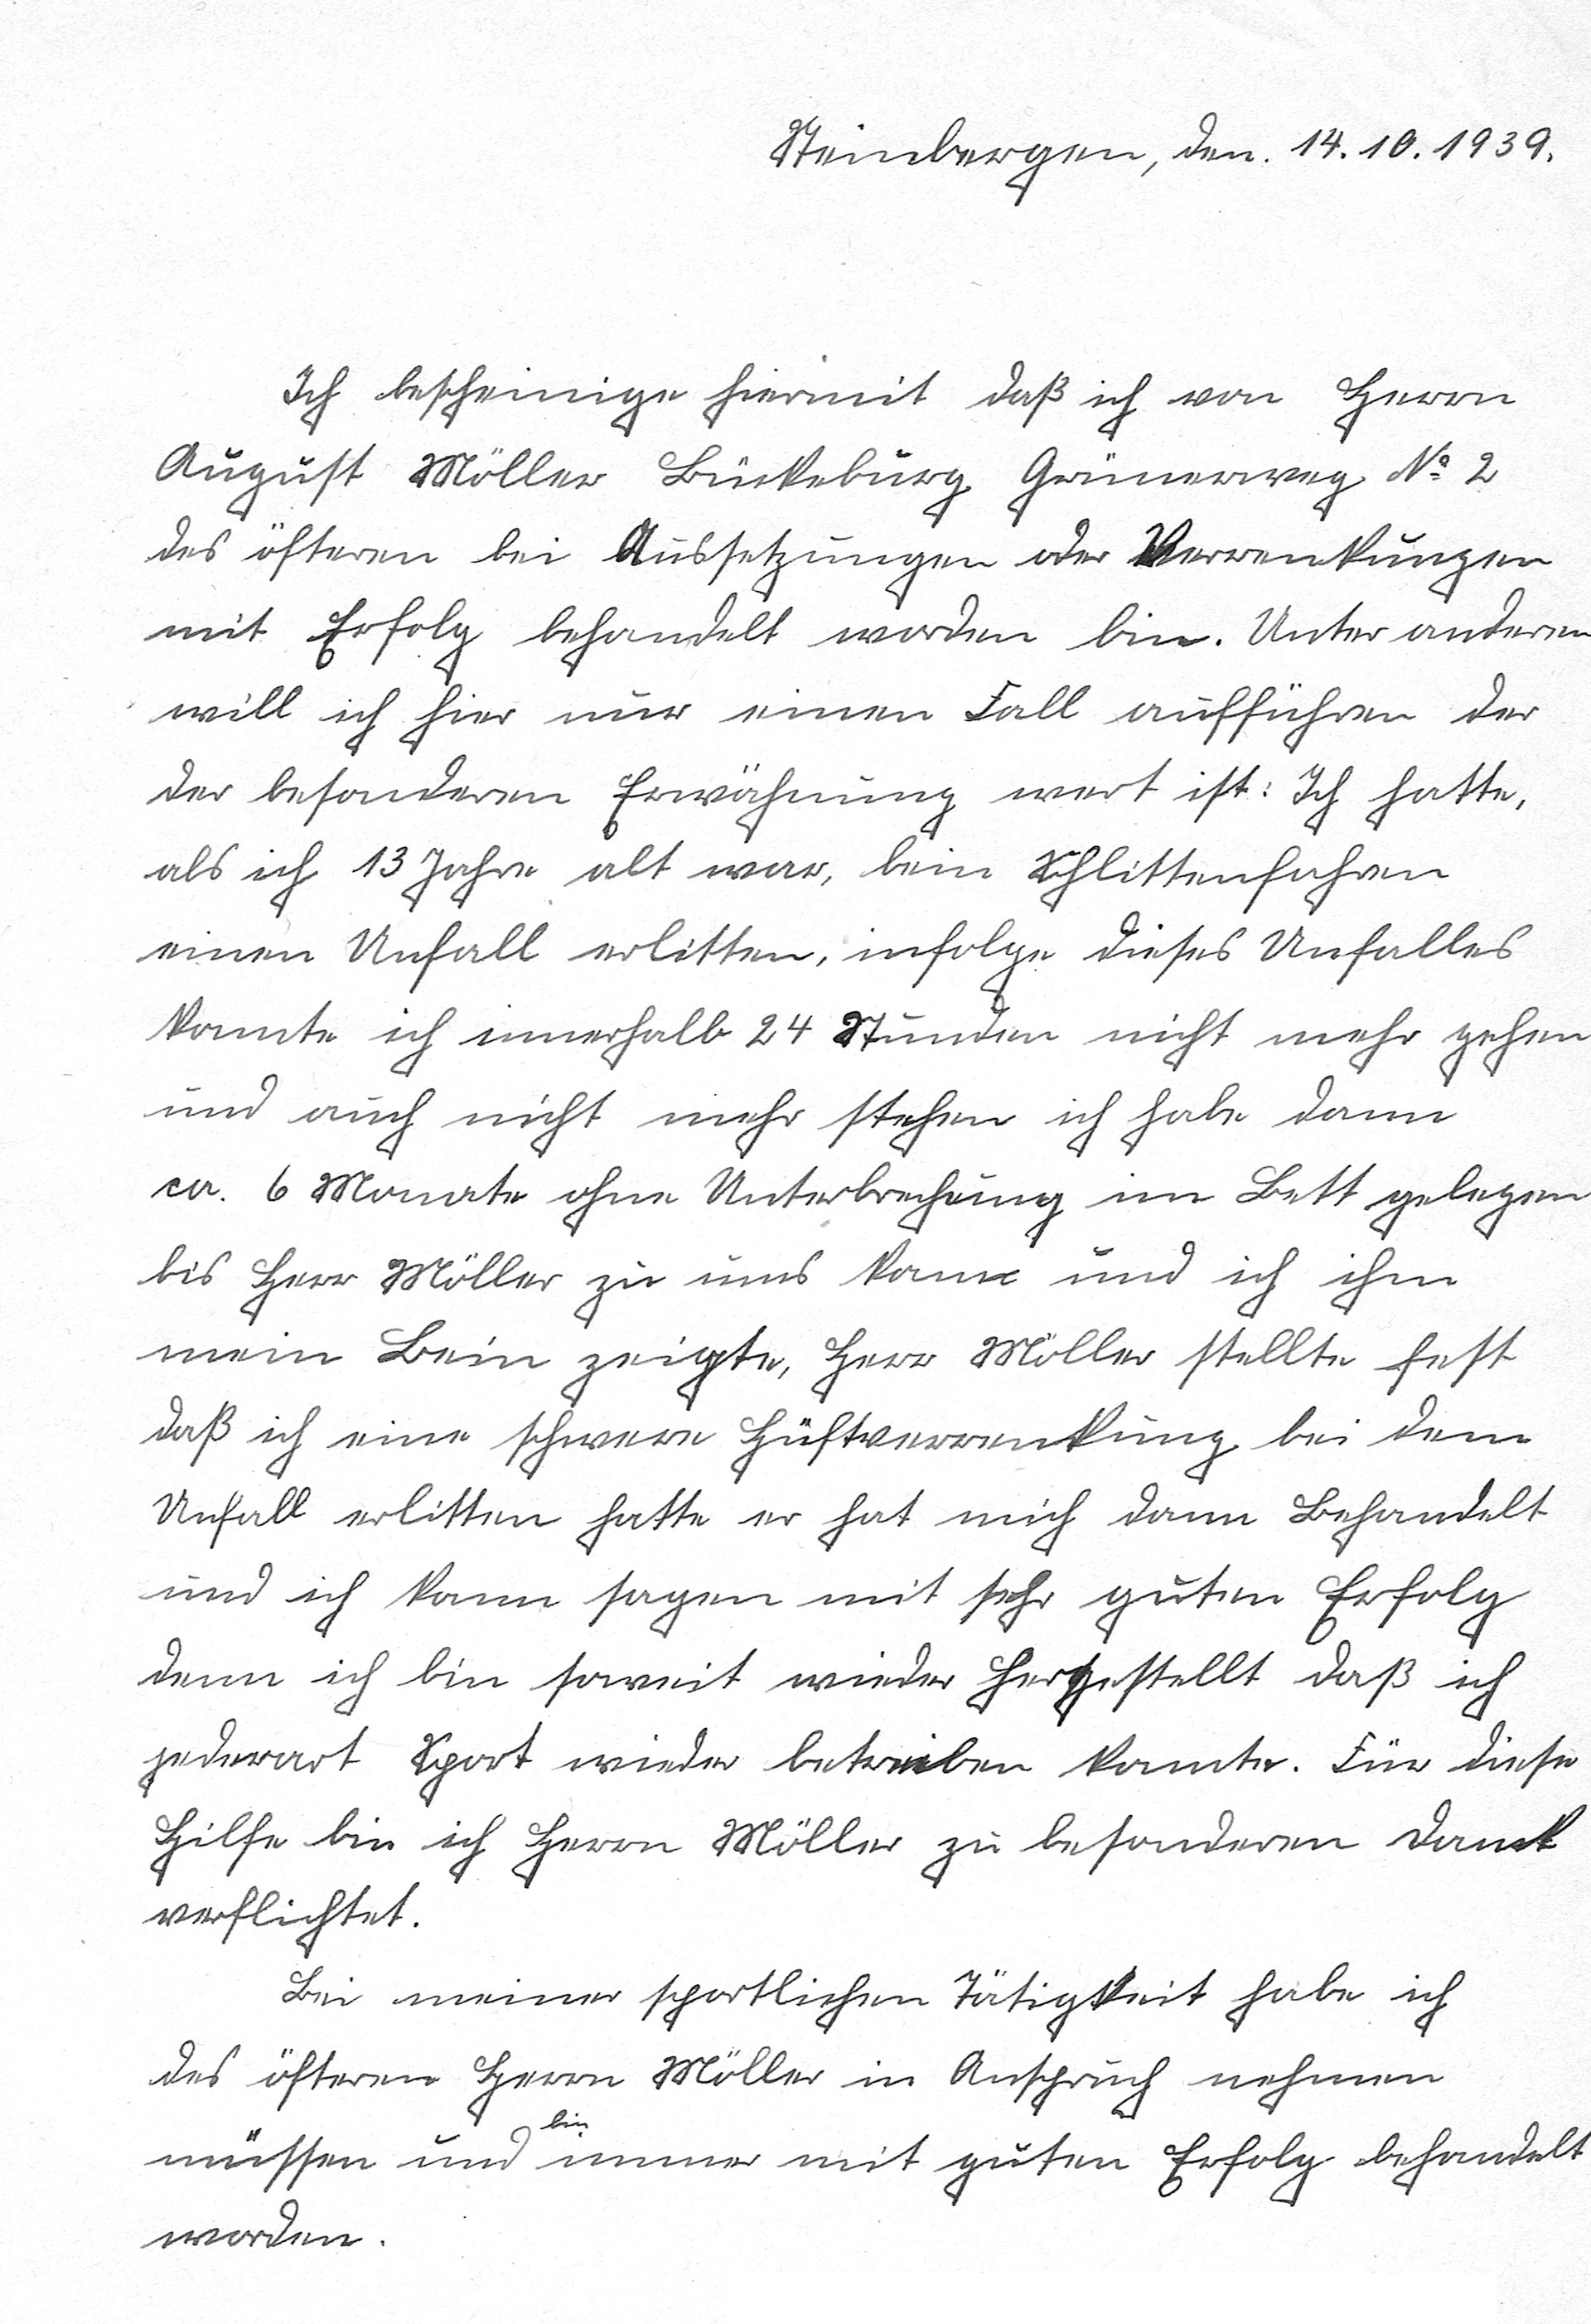 Steinbergen, den. 14.10.1939.
Ich bescheinige hiermit daß ich von Herrn
August Möller Bückeburg Grünerweg No 2
des öfteren bei Aussetzungen oder Verrenkungen
mit Erfolg behandelt worden bin. Unter anderen
will ich hier nur einen Fall aufführen der
der besonderen Erwähnung wert ist: Ich hatte,
als ich 13 Jahre alt war, beim Schlittenfahren
einen Unfall erlitten, infolge dieses Unfalles
konnte ich innerhalb 24 Stunden nicht mehr gehen
und auch nicht mehr stehen ich habe dann
ca. 6 Monate ohne Unterbrechung im Bett gelegen
bis Herr Möller zu uns kam und ich ihm
mein Bein zeigte, Herr Möller stellte fest
daß ich eine schwere Hüftverrenkung bei dem
Unfall erlitten hatte er hat mich dann Behandelt
und ich kann sagen mit sehr guten Erfolg
denn ich bin soweit wieder hergestellt daß ich
jederart Sport wieder betreiben konnte. Für diese
Hilfe bin ich Herrn Möller zu besonderen Dank
verflichtet.
Bei meiner sportlichen Tätigkeit habe ich
des öfteren Herrn Möller in Anspruch nehmen
müssen und bin immer mit guten Erfolg behandelt
worden.